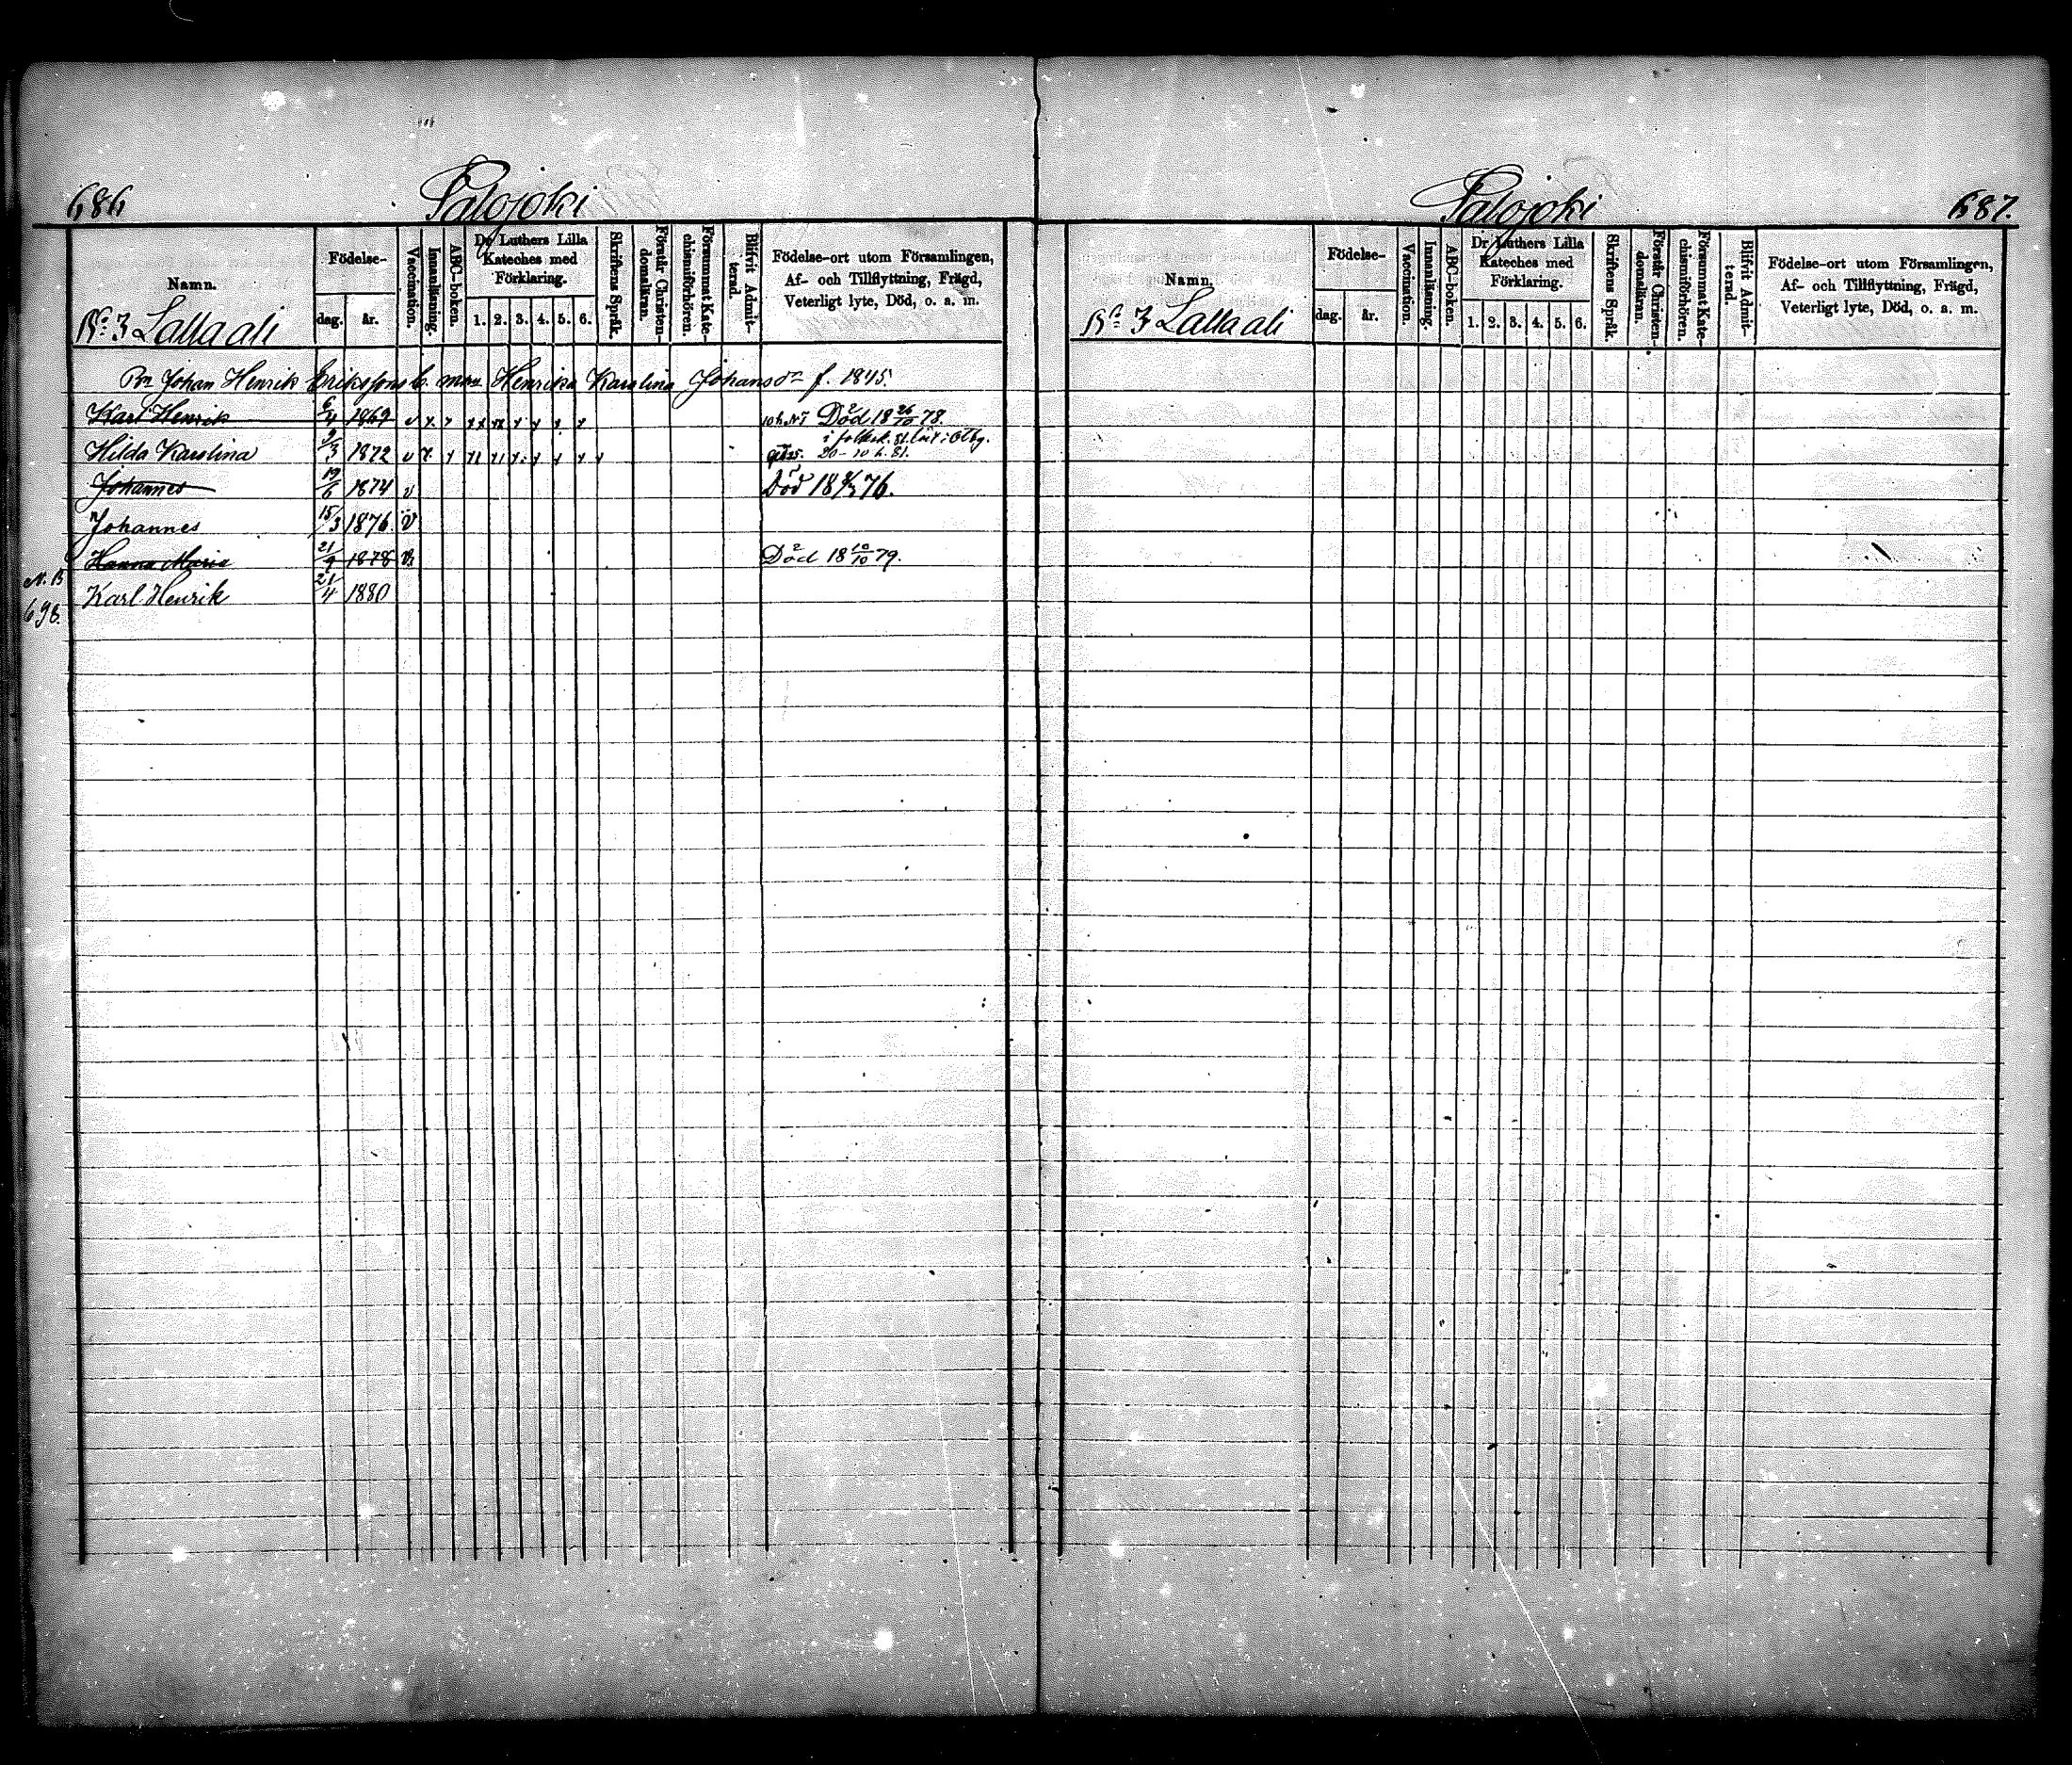 686
Palojoki
Namn.
Födelse-
dag.
år.
Vaccination.
Innanläsning.
ABC-boken.
Dr Luthers Lilla
Kateches med
Förklaring.
1. 2. 3. 4. 5. 6.
Skriftens Språk.
Förstår Christen-
domsläran.
Försummat Kate-
chismiförhören.
Blifvit Admit-
terad.
Födelse-ort utom Församlingen,
Af- och Tillflyttning, Frägd,
Veterligt lyte, Död, o. a. m.
No 3 Lallaali
Johan Henrik Erikssons Henrika Karolina Johansdr f. 1845.
Karl Henrik 6/4 1869 v Död 18 26/10 78.
Hilda Karolina 2/3 1872 v 20-10 81.
Johannes 19/6 1874 v Död 18 76.
Johannes 15/3 1876. v
Hanna Maria 21/9 1878 v Död 18 10/10 79.
N. B
Karl Henrik 21/4 1880
698.
Palojoki
687.
Namn.
Födelse-
dag.
år.
Vaccination.
Innanläsning.
ABC-boken.
Dr Luthers Lilla
Kateches med
Förklaring.
1. 2. 3. 4. 5. 6.
Skriftens Språk.
Förstår Christen-
domsläran.
Försummat Kate-
chismiförhören.
Blifvit Admit-
terad.
Födelse-ort utom Församlingen,
Af- och Tillflyttning, Frägd,
Veterligt lyte, Död, o. a. m.
No 3 Lallaali